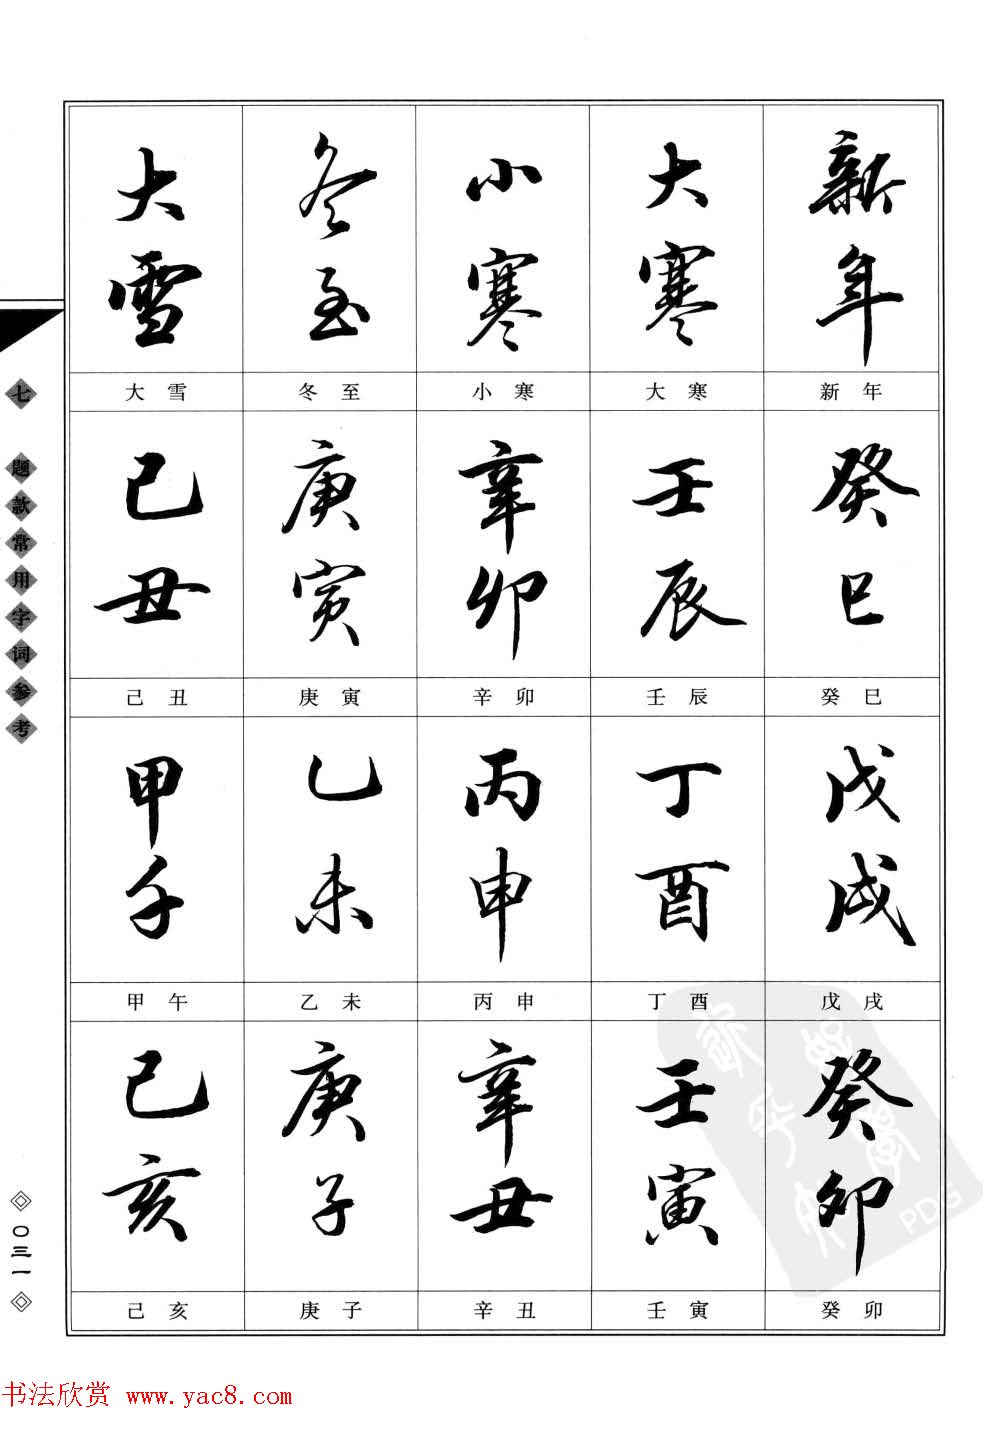 大雪
冬至
小寒
大寒
新年
大雪
冬至
小寒
大寒
新年
己丑
庚寅
辛卯
壬辰
癸巳
己丑
庚寅
辛卯
壬辰
癸巳
甲午
乙未
丙申
丁酉
戊戌
甲午
乙未
丙申
丁酉
戊戌
己亥
庚子
辛丑
壬寅
癸卯
己亥
庚子
辛丑
壬寅
癸卯
七 题款常用字词参考
〇三一
PDG
书法欣赏 www.yac8.com